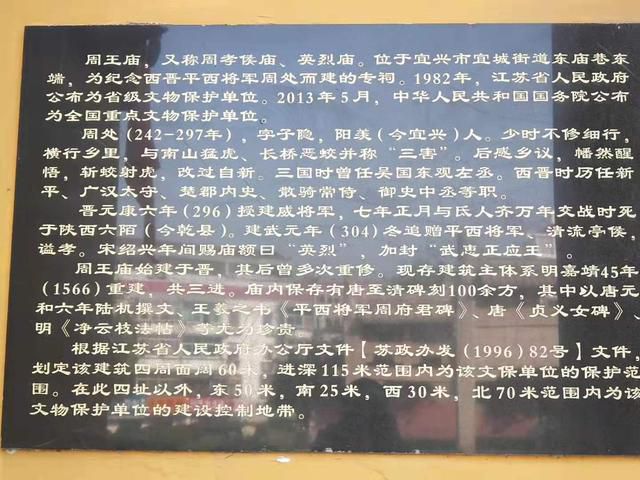 周王庙，又称周孝侯庙、英烈庙。位于宜兴市宜城街道东庙巷东
端，为纪念西晋平西将军周处而建的专祠。1982年，江苏省人民政府
公布为省级文物保护单位。2013年5月，中华人民共和国国务院公布
为全国重点文物保护单位。
周处（242-297年），字子隐，阳羡（今宜兴）人。少时不修细行，
横行乡里，与南山猛虎、长桥恶蛟并称“三害”。后感乡议，幡然醒
悟，斩蛟射虎，改过自新。三国时曾任吴国东观左丞。西晋时历任新
平、广汉太守、楚郡内史、散骑常侍、御史中丞等职。
晋元康六年（296）授建威将军，七年正月与氐人齐万年交战时死
于陕西六陌（今乾县）。建武元年（304）冬追赠平西将军、清流亭侯，
谥孝。宋绍兴年间赐庙额曰“英烈”，加封“武惠正应王”。
周王庙始建于晋，其后曾多次重修。现存建筑主体系明嘉靖45年
（1566）重建，共三进。庙内保存有唐至清碑刻100余方，其中以唐元
和六年陆机撰文、王羲之书《平西将军周府君碑》、唐《贞义女碑》、
明《净云枝法帖》等尤为珍贵。
根据江苏省人民政府办公厅文件【苏政办发（1996）82号】文件，
划定该建筑四周面阔60米，进深115米范围内为该文保单位的保护范
围。在此四址以外，东50米，南25米，西30米，北70米范围内为该
文物保护单位的建设控制地带。